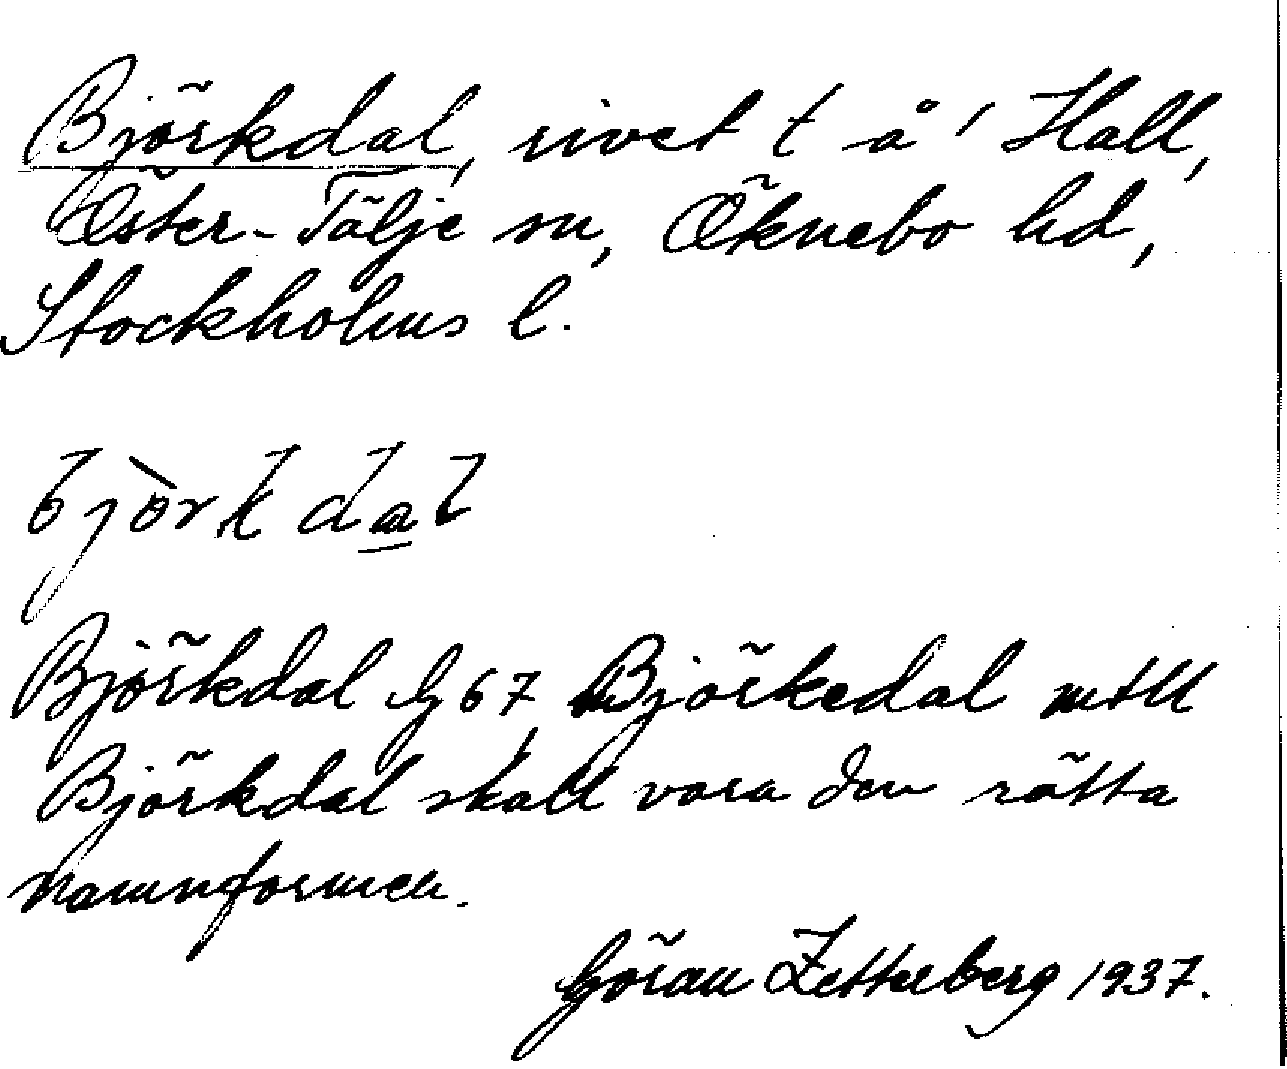 Björkdal, rivet t å' Hall,
Öster-Tälje sn, Öknebo hd,
Stockholms l.
björkdal
Björkdal Gg 67, Björkedal mtll
Björkdal skall vara den rätta
namnformen.
Göran Zetterberg 1937.